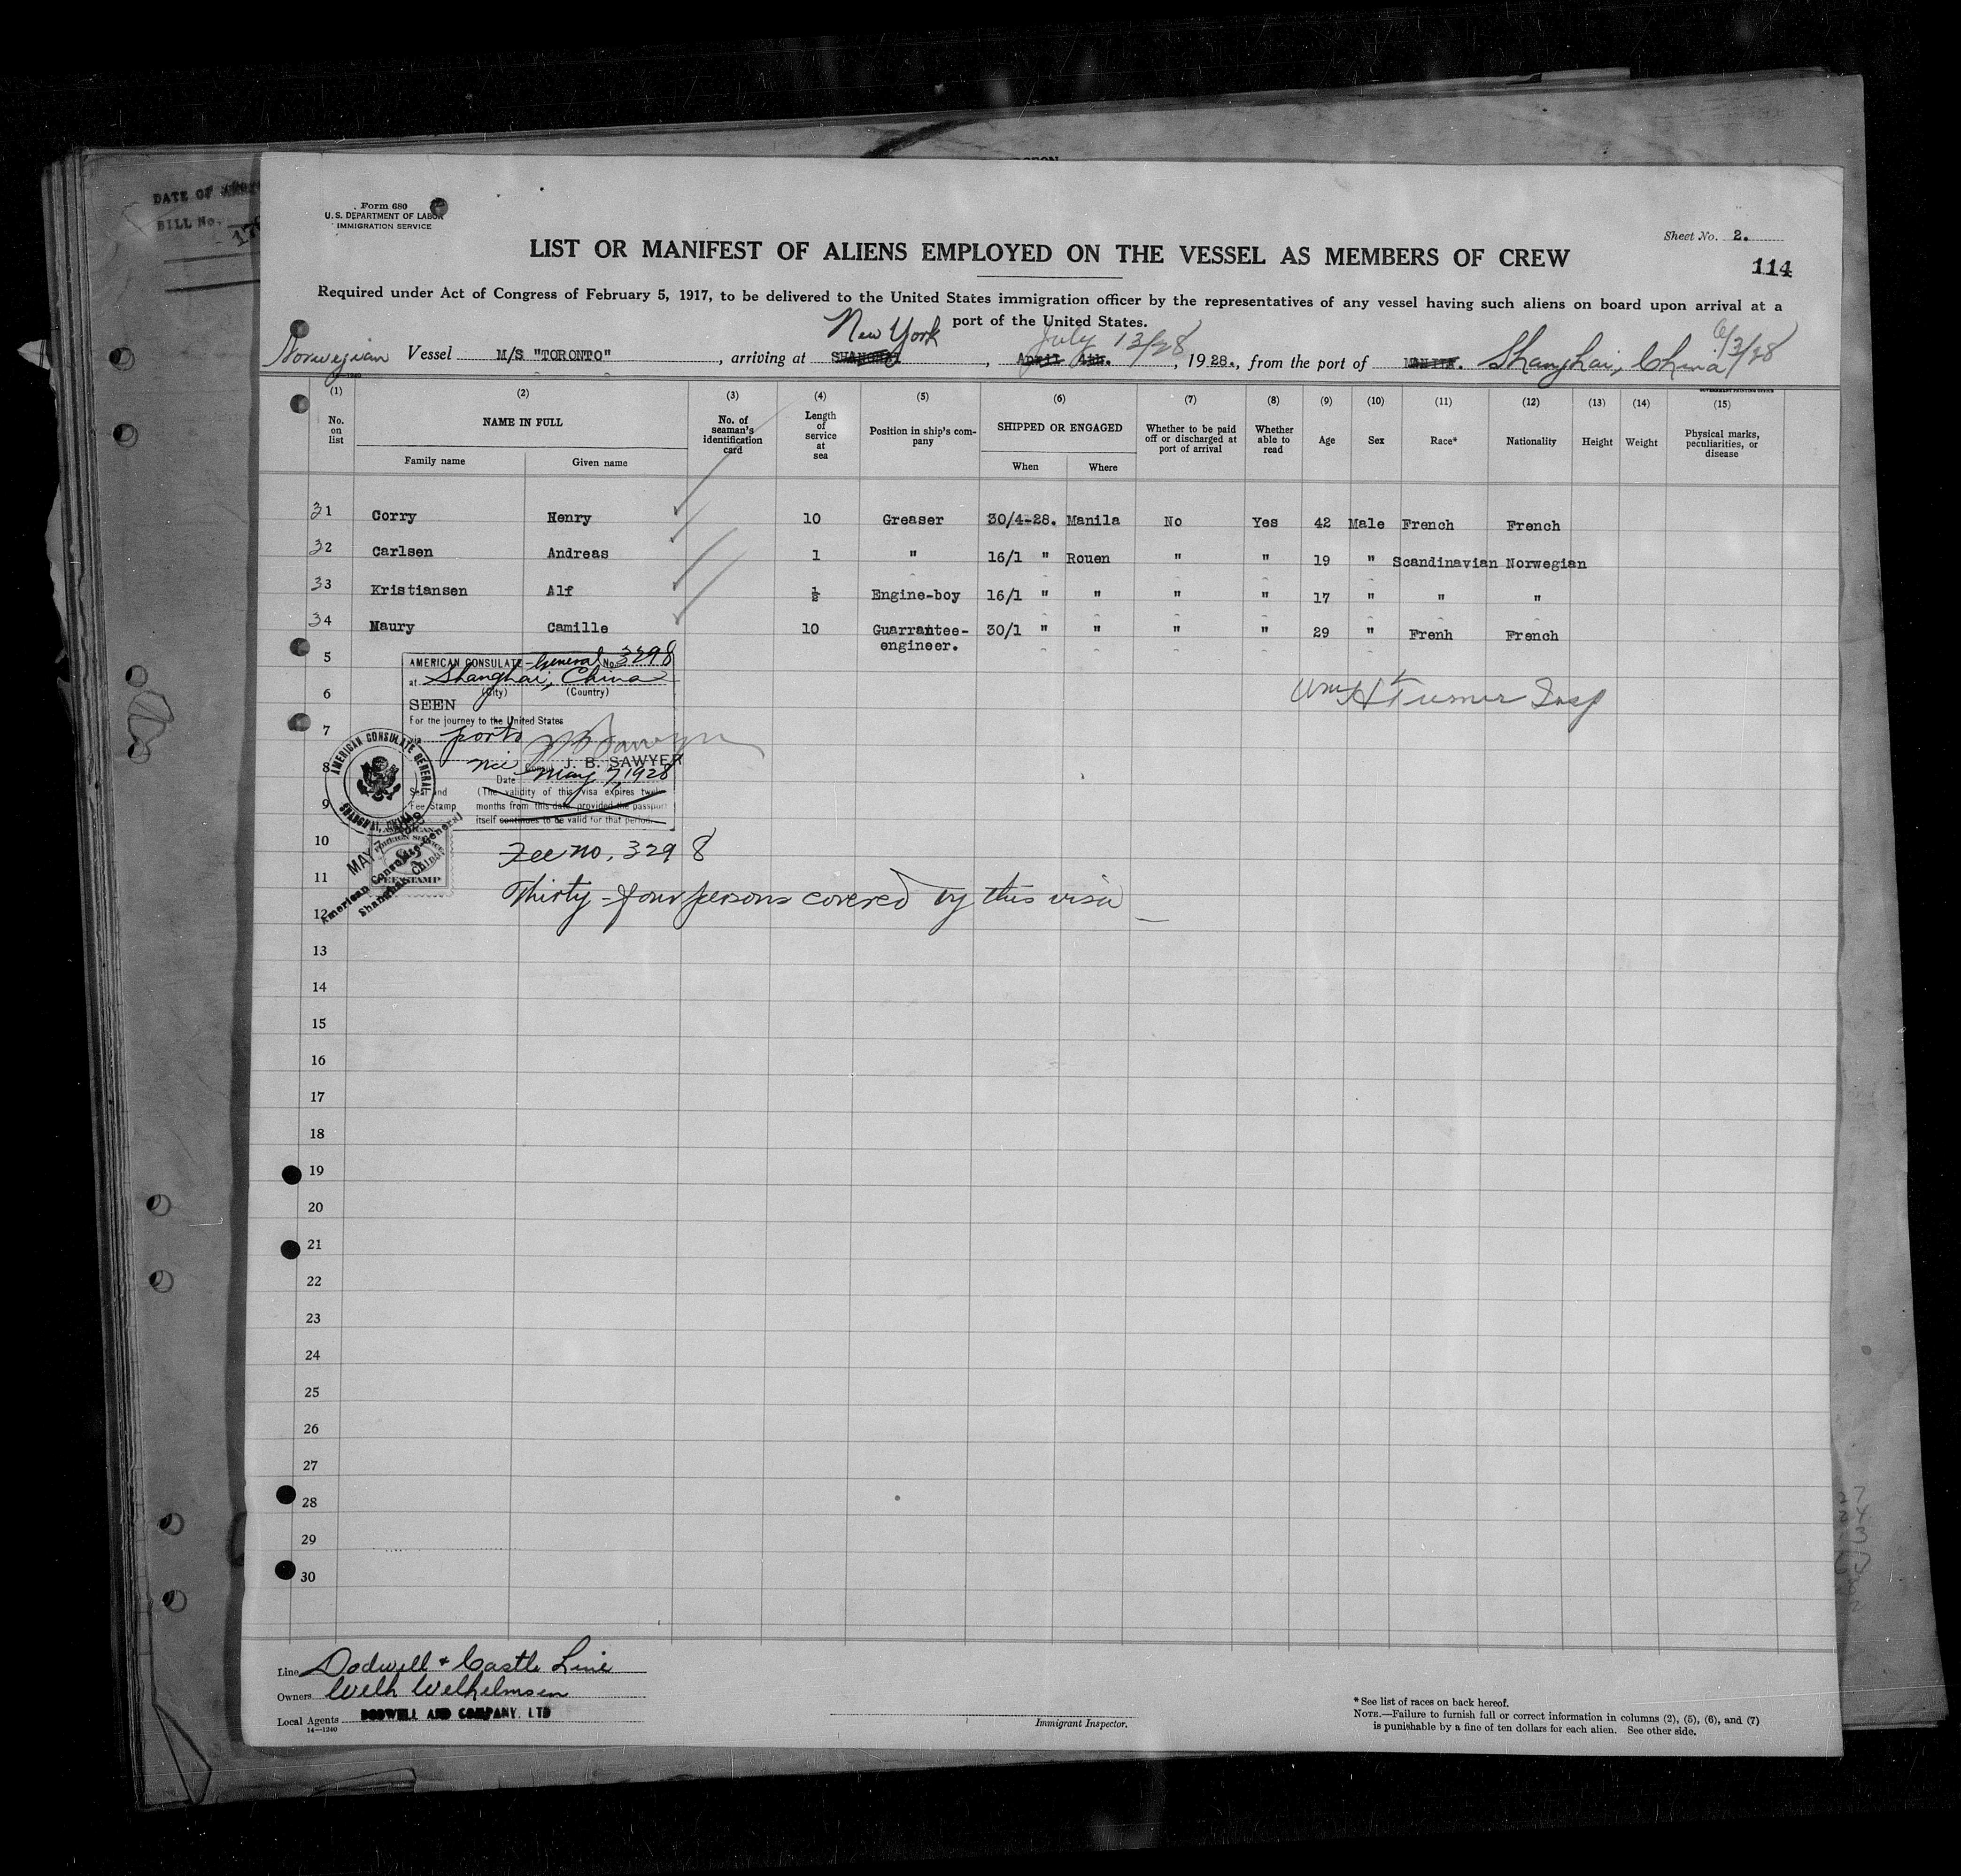 DATE OF
BILL No.
Form 680
U. S. DEPARTMENT OF LABOR
IMMIGRATION SERVICE
Sheet No. 2.
LIST OR MANIFEST OF ALIENS EMPLOYED ON THE VESSEL AS MEMBERS OF CREW
114
Required under Act of Congress of February 5, 1917, to be delivered to the United States immigration officer by the representatives of any vessel having such aliens on board upon arrival at a
port of the United States.
New York July 13/28 6/3/28
Norwegian Vessel M/S "TORONTO", arriving at SHANGHAI, April 4th., 1928., from the port of MANILA. Shanghai, China
(1) (2) (3) (4) (5) (6) (7) (8) (9) (10) (11) (12) (13) (14) (15)
No. on list NAME IN FULL No. of seaman's identification card Length of service at sea Position in ship's company SHIPPED OR ENGAGED Whether to be paid off or discharged at port of arrival Whether able to read Age Sex Race* Nationality Height Weight Physical marks, peculiarities, or disease
Family name Given name When Where
31 Corry Henry 10 Greaser 30/4-28. Manila No Yes 42 Male French French
32 Carlsen Andreas 1 " 16/1 " Rouen " " 19 " Scandinavian Norwegian
33 Kristiansen Alf ½ Engine-boy 16/1 " " " " 17 " " "
34 Maury Camille 10 Guarrantee-engineer. 30/1 " " " " 29 " Frenh French
5
6
7
8
9
10
11
12
13
14
15
16
17
18
19
20
21
22
23
24
25
26
27
28
29
30
AMERICAN CONSULATE-General No. 3298
at Shanghai, China
(City) (Country)
SEEN
For the journey to the United States
ports
J. B. SAWYER
Date May 7, 1928
Seal and Fee Stamp
(The validity of this visa expires twelve
months from this date provided the passport
itself continues to be valid for that period.
AMERICAN CONSULATE GENERAL
SHANGHAI, CHINA
MAY 7 1928
American Consulate General
Shanghai China
FEE STAMP
Wm H Turner Insp
Fee no. 3298
Thirty-four persons covered by this visa
Line Dodwell & Castle Line
Owners Wilh Wilhelmsen
Local Agents DODWELL AND COMPANY, LTD
14—1240
Immigrant Inspector.
* See list of races on back hereof.
NOTE.—Failure to furnish full or correct information in columns (2), (5), (6), and (7)
is punishable by a fine of ten dollars for each alien. See other side.